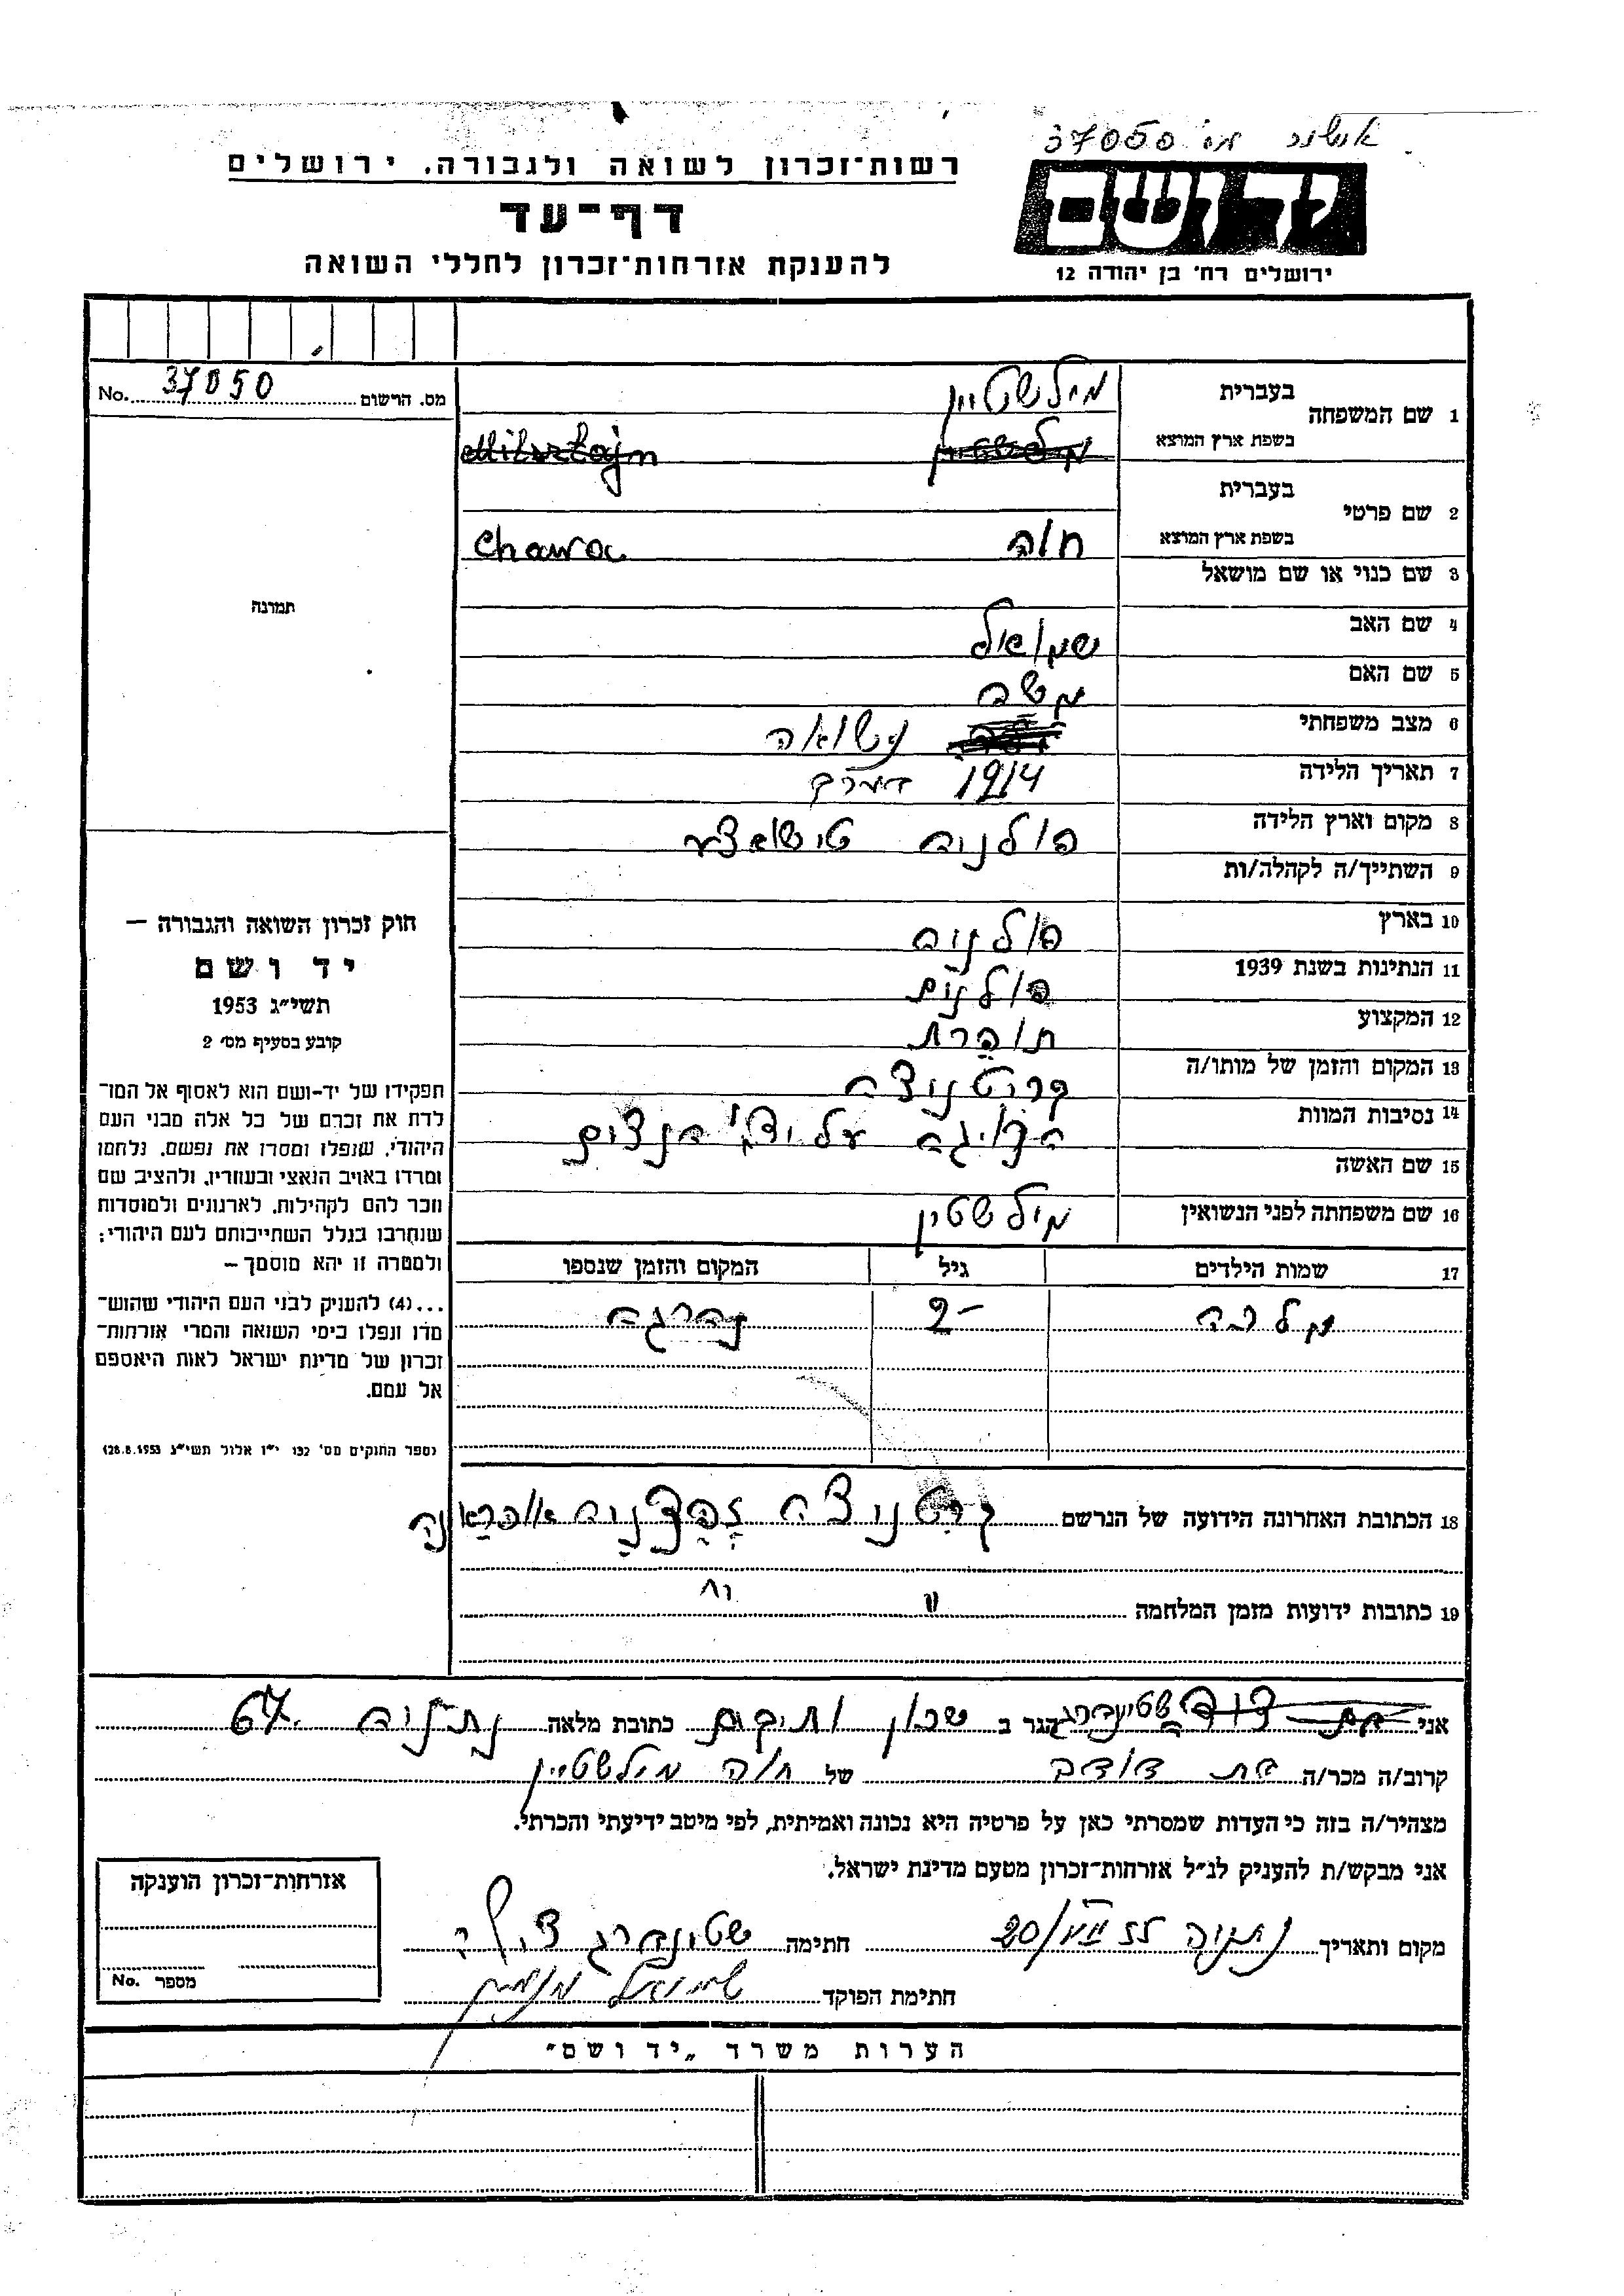 37050
רשות־זכרון לשואה ולגבורה. ירושלים
דף־עד
להענקת אזרחות־זכרון לחללי השואה
יד ושם
ירושלים רח' בן יהודה 12
מס. הרשום 37050 No.
תמונה
חוק זכרון השואה והגבורה —
יד ושם
תשי״ג 1953
קובע בסעיף מס׳ 2
תפקידו של יד-ושם הוא לאסוף אל המו־
לדת את זכרם של כל אלה מבני העם
היהודי, שנפלו ומסרו את נפשם, נלחמו
ומרדו באויב הנאצי ובעוזריו, ולהציב שם
וזכר להם לקהילות, לארגונים ולמוסדות
שנחרבו בגלל השתייכותם לעם היהודי;
ולמטרה זו יהא מוסמך —
...(4) להעניק לבני העם היהודי שהוש־
מדו ונפלו בימי השואה והמרי אזרחות־
זכרון של מדינת ישראל לאות היאספם
אל עמם.
(ספר החוקים מס׳ 132 י״ז אלול תשי״ג 28.8.1953)
1 שם המשפחה בעברית מילשטיין
בשפת ארץ המוצא Milsztajn
2 שם פרטי בעברית
בשפת ארץ המוצא חוה Chawa
3 שם כנוי או שם מושאל
4 שם האב שמואל
5 שם האם
6 מצב משפחתי נשואה
7 תאריך הלידה 1914
8 מקום וארץ הלידה פולניה
9 השתייך/ה לקהלה/ות
10 בארץ פולניה
11 הנתינות בשנת 1939 פולנית
12 המקצוע תופרת
13 המקום והזמן של מותו/ה
14 נסיבות המוות על ידי הנצים
15 שם האשה
16 שם משפחתה לפני הנשואין מילשטין
17 שמות הילדים גיל המקום והזמן שנספו
מלכה 2- נהרגה
18 הכתובת האחרונה הידועה של הנרשם
19 כתובות ידועות מזמן המלחמה
אני הגר ב שכון ותיקים כתובת מלאה נתניה 67
קרוב/ה מכר/ה בת דודה של חוה מילשטיין
מצהיר/ה בזה כי העדות שמסרתי כאן על פרטיה היא נכונה ואמיתית, לפי מיטב ידיעתי והכרתי.
אני מבקש/ת להעניק לנ״ל אזרחות־זכרון מטעם מדינת ישראל.
מקום ותאריך נתניה 20/VII 55 חתימה
חתימת הפוקד שמואל
אזרחות־זכרון הוענקה
מספר No.
הערות משרד „יד ושם״